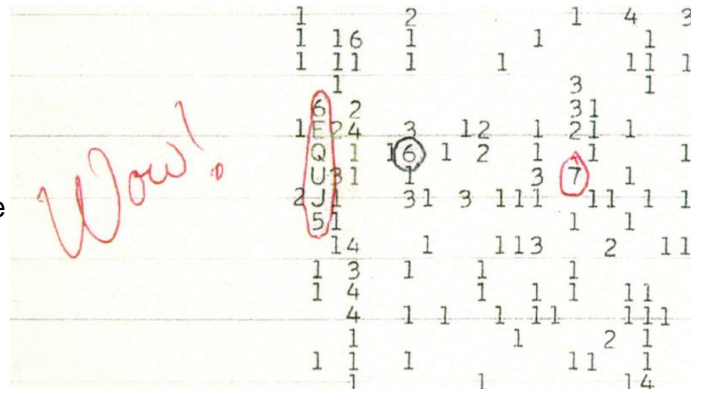 1 2 1 4 3
1 16 1 1 1
1 11 1 1 11 1
1 3 1
6 2 31
1E24 3 12 1 21 1
Wow!
Q 1 16 1 2 1 1 1
U31 1 3 7 1
e
2J1 31 3 111 11 1 1
51 1 1
14 1 113 2 11
1 3 1 1 1
1 4 1 1 1 11
4 1 1 1 11 111
1 1 2 1
1 1 1 11 1
1 1 14